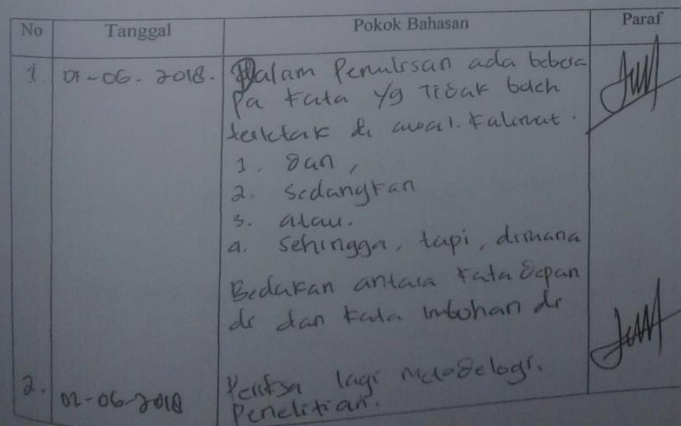 No Tanggal Pokok Bahasan Paraf
1. 01-06-2018. Dalam Penulisan ada bebera
pa kata yg Tidak boleh
terletak di awal. kalimat.
1. dan,
2. sedangkan
3. atau.
4. sehingga, tapi, dimana
Bedakan antara kata depan
di dan kata imbuhan di
2. 02-06-2018 Periksa lagi metodelogi.
Penelitian.